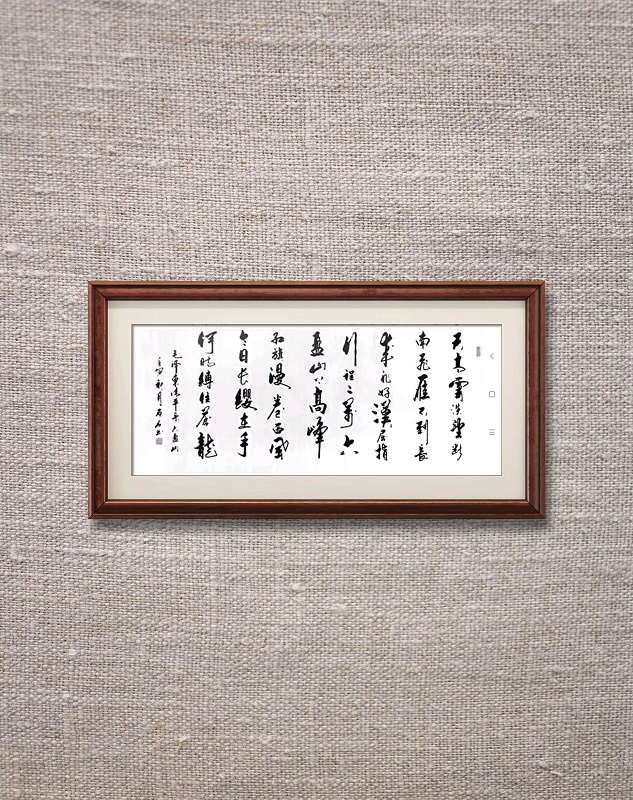 天高雲淡望断
南飛雁不到長
城非好漢屈指
行程二萬六
盘山上高峰
红旗漫卷西風
今日長纓在手
何时縛住蒼龍
毛澤東清平樂六盘山
壬寅初月